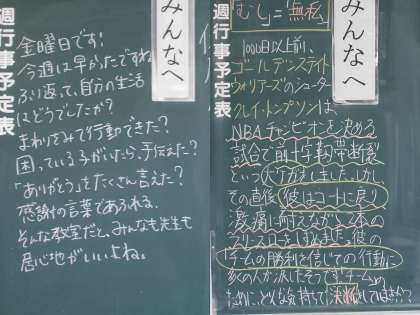 週行事予定表
みんなへ
金曜日です!
今週は早かったですね
ふり返って、自分の生活
はどうでしたか?
まわりをみて行動できた?
困っている子がいたら、手伝えた?
「ありがとう」をたくさん言えた?
感謝の言葉であふれる。
そんな教室だと、みんなも先生も
居心地がいいよね。
週行事予定表
みんなへ
むし=「無私」
1000日以上前、
ゴールデンステイト
ウォリアーズのシューター
クレイ・トンプソンは
NBAチャンピオンを決める
試合で前十字靭帯断裂
という大ケガをしました。しかし
その直後、彼はコートに戻り
激痛に耐えながら2本の
フリースローをしずめました。彼の
「チームの勝利を信じての行動」に
多くの人が涙したそうです。「チーム」の
ために、どんな気持ちで